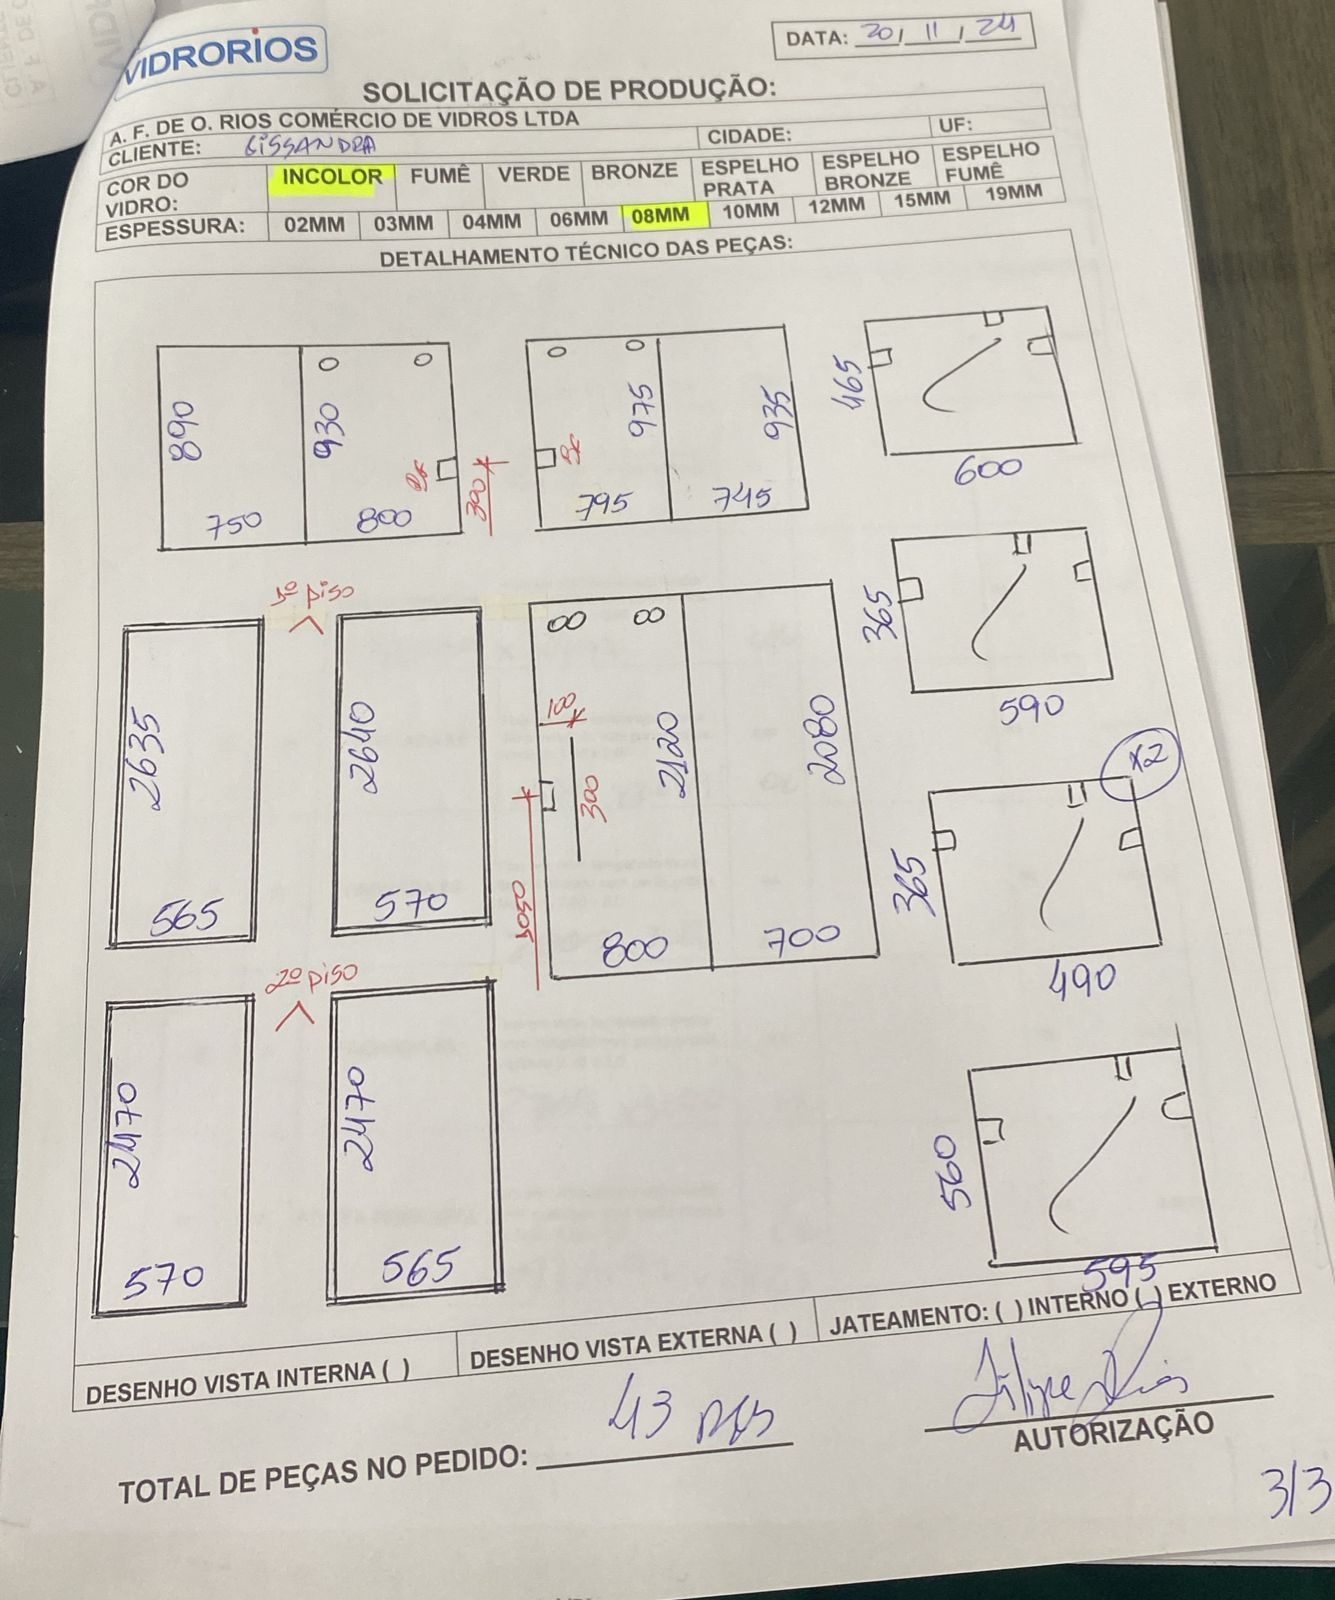 VIDRORIOS
DATA: 20/11/24
SOLICITAÇÃO DE PRODUÇÃO:
A. F. DE O. RIOS COMÉRCIO DE VIDROS LTDA
CLIENTE: GISSANDRA CIDADE: UF:
COR DO VIDRO: INCOLOR FUMÊ VERDE BRONZE ESPELHO PRATA ESPELHO BRONZE ESPELHO FUMÊ
ESPESSURA: 02MM 03MM 04MM 06MM 08MM 10MM 12MM 15MM 19MM
DETALHAMENTO TÉCNICO DAS PEÇAS:
890 930 975 935 465
300
750 800 795 745 600
1º piso
365
590
2635 2640 100 2120 2080 x2
300
365
1050
565 570 800 700 490
2º piso
2470 2470 560
570 565 595
DESENHO VISTA INTERNA ( ) DESENHO VISTA EXTERNA ( ) JATEAMENTO: ( ) INTERNO ( ) EXTERNO
TOTAL DE PEÇAS NO PEDIDO: 43 pçs
Filipe Rios
AUTORIZAÇÃO
3/3